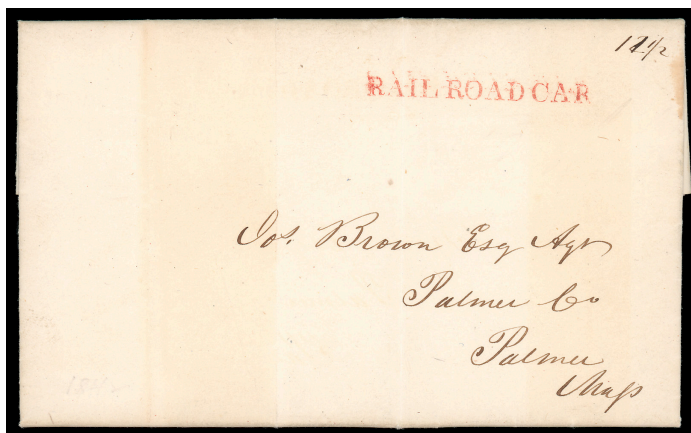 12½
RAIL ROAD CAR
Jos. Brown Esq Agt
Palmer Co
Palmer
Mass